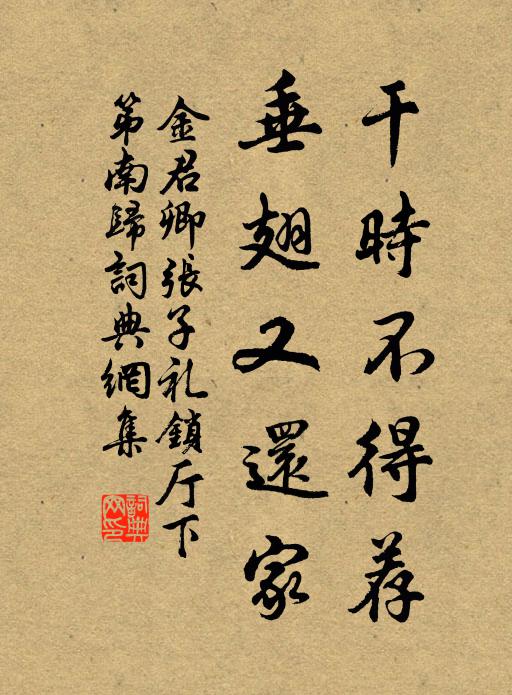 干時不得荐
垂翅又還家
金君卿張子礼鎖厅下
第南歸詞典網集
詞典網印